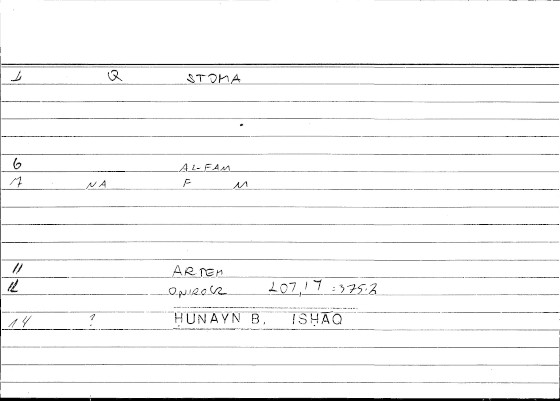 1 Q STOMA
6 AL-FAM
7 NA F M
11 ARTEM
12 ONIROCR 207,17 :375.2
14 ? ḤUNAYN B. ISḤĀQ